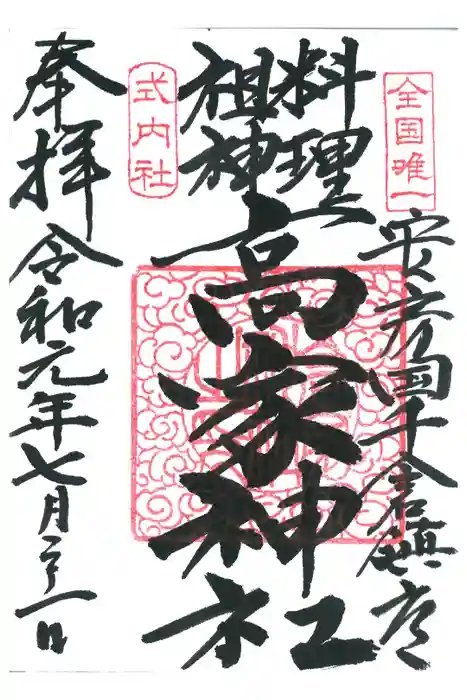 全国唯一
安房国千倉鎮座
料理
祖神
式内社
高家神社
奉拝
令和元年七月二十一日